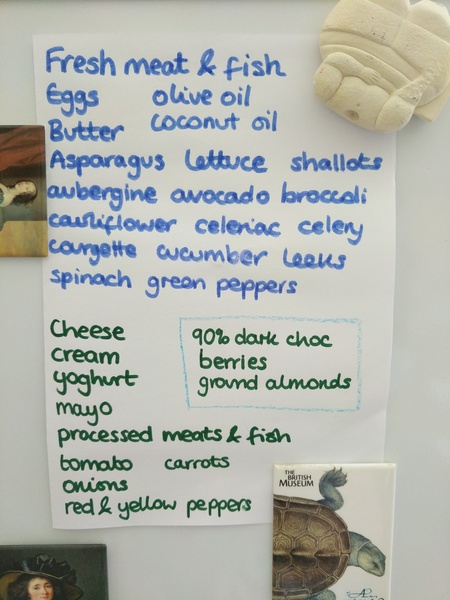 Fresh meat & fish
Eggs olive oil
Butter coconut oil
Asparagus lettuce shallots
aubergine avocado broccoli
cauliflower celeriac celery
courgette cucumber leeks
spinach green peppers
Cheese
cream
yoghurt
mayo
processed meats & fish
tomato carrots
onions
red & yellow peppers
90% dark choc
berries
ground almonds
THE
BRITISH
MUSEUM